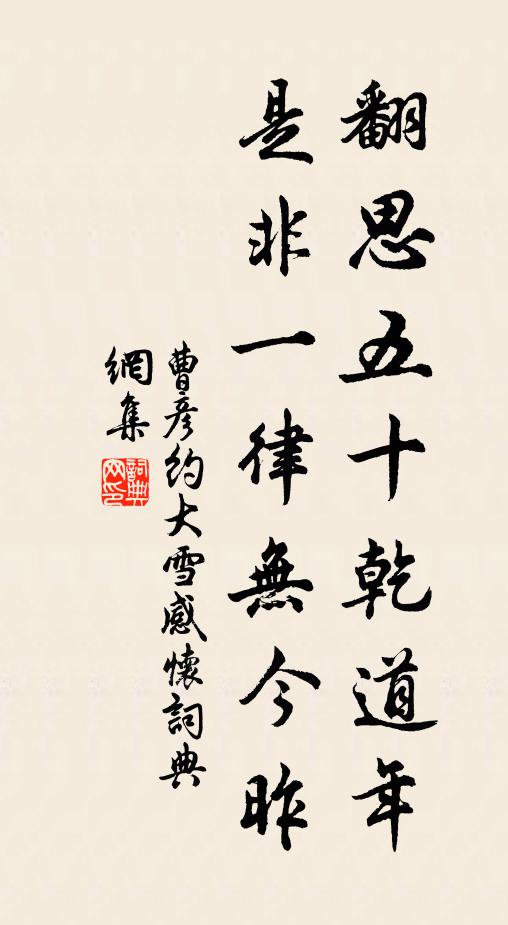 翻思五十乾道年
是非一律無今昨
曹彦約大雪感懷詞典
網集
詞典网印